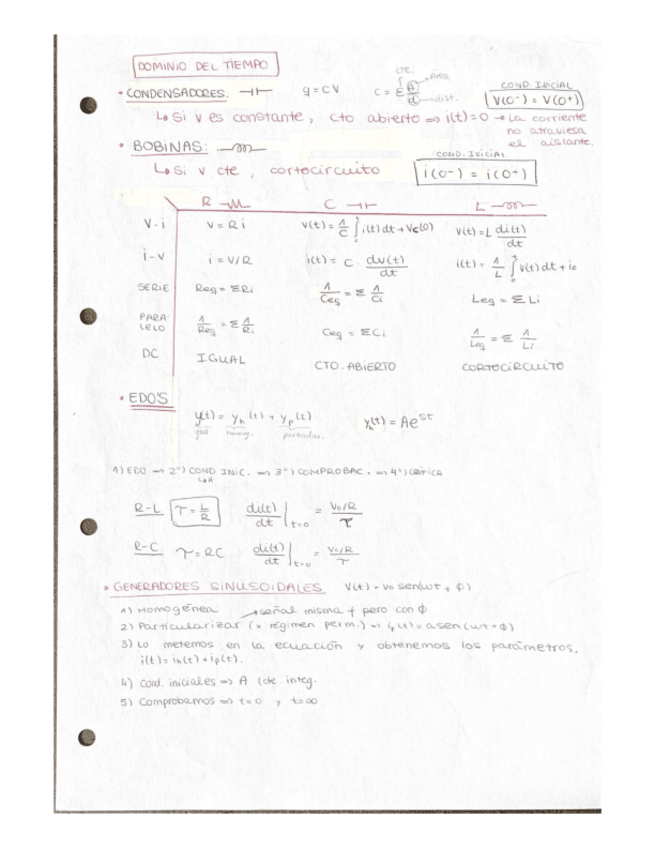 DOMINIO DEL TIEMPO
• CONDENSADORES: ⊣⊢ q = CV C = ε A/d cte. área dist. COND. INICIAL V(0-) = V(0+)
↳ Si V es constante, cto abierto ⇒ i(t) = 0 → La corriente
no atraviesa
el aislante.
• BOBINAS: COND. INICIAL
↳ Si v cte, cortocircuito i(0-) = i(0+)
R C L
V-i v = Ri v(t) = 1/C ∫ i(t) dt + Vc(0) v(t) = L di(t)/dt
i-v i = V/R i(t) = C · dv(t)/dt i(t) = 1/L ∫ v(t) dt + i0
SERIE Req = ΣRi 1/Ceq = Σ 1/Ci Leq = ΣLi
PARA-
LELO 1/Req = Σ 1/Ri Ceq = ΣCi 1/Leq = Σ 1/Li
DC IGUAL CTO. ABIERTO CORTOCIRCUITO
• EDO'S
y(t) = yh(t) + yp(t) yh(t) = Ae^st
homog. particular.
1) EDO ⇒ 2º) COND INIC. ⇒ 3º) COMPROBAC. ⇒ 4º) GRÁFICA
↳A
R-L τ = L/R di(t)/dt |t=0 = V0/R / τ
R-C τ = RC di(t)/dt |t=0 = V0/R / τ
• GENERADORES SINUSOIDALES V(t) = V0 sen(wt + ϕ)
1) Homogénea → señal misma f pero con ϕ
2) Particularizar (x régimen perm.) ⇒ ip(t) = a sen(wt+ϕ)
3) Lo metemos en la ecuación y obtenemos los parámetros,
i(t) = ih(t) + ip(t).
4) Cond. iniciales ⇒ A (cte. integ.
5) Comprobamos ⇒ t=0 y t=∞